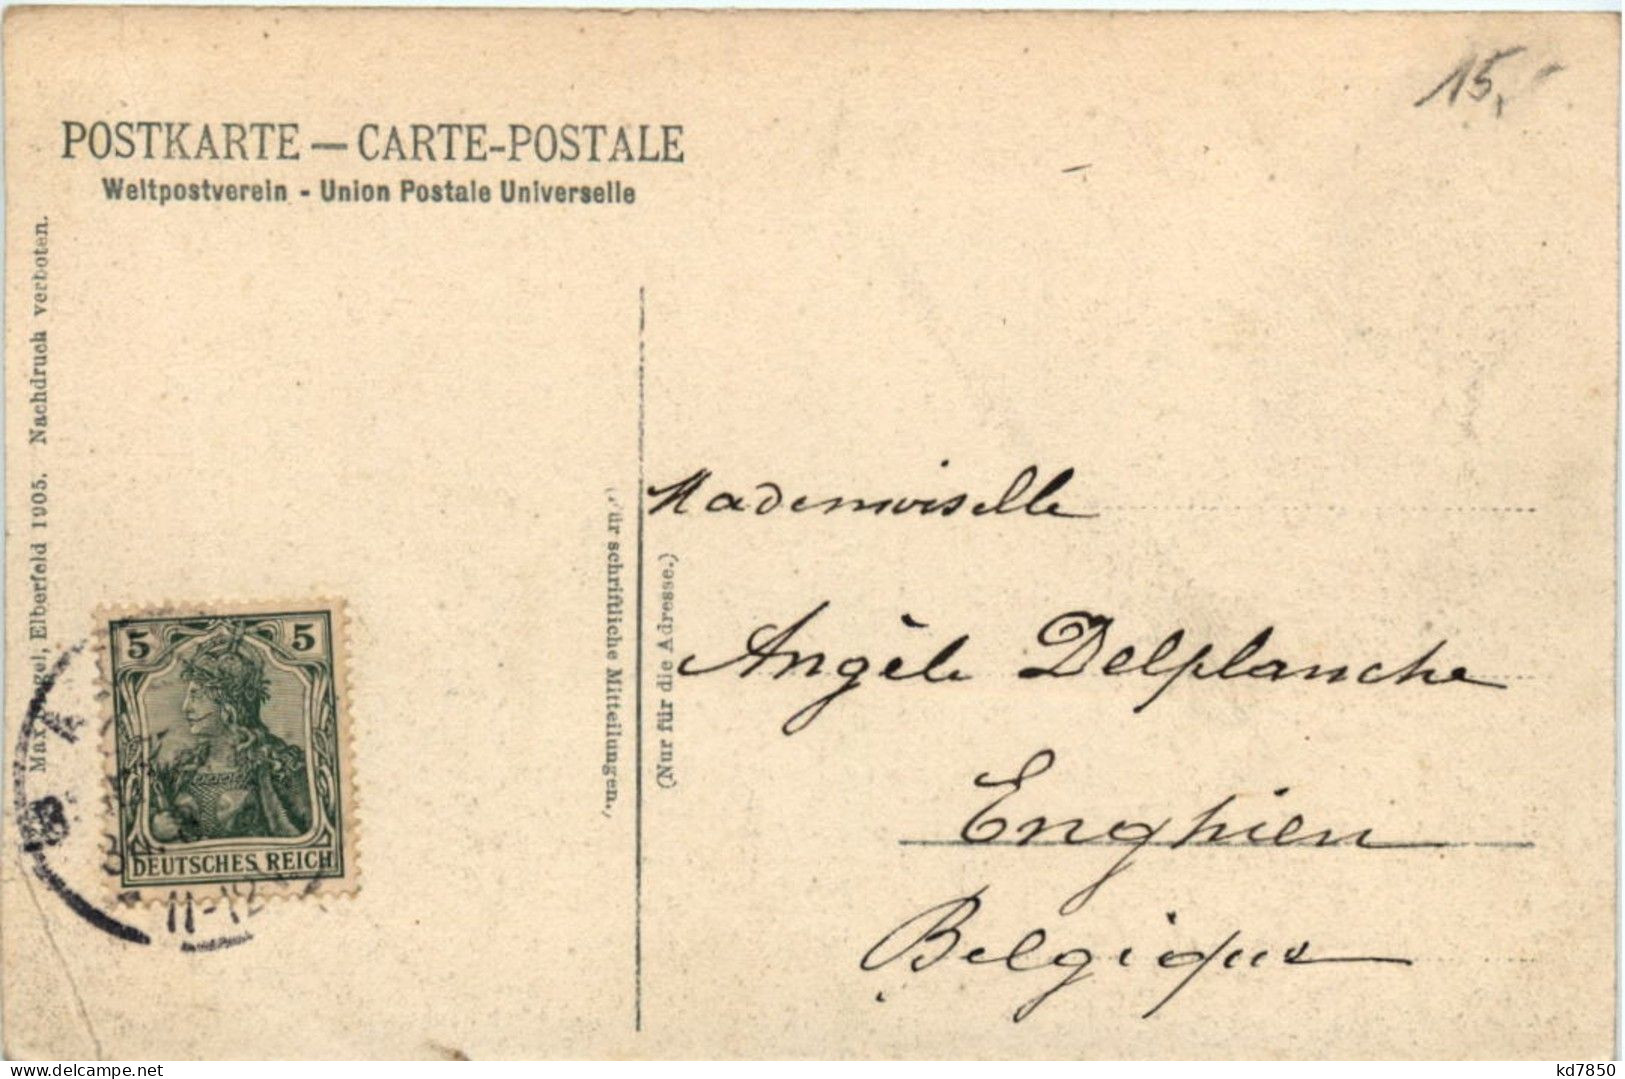 15.
POSTKARTE — CARTE-POSTALE
Weltpostverein - Union Postale Universelle
Elberfeld 1905. Nachdruck verboten.
für schriftliche Mitteilungen.
(Nur für die Adresse.)
Mademoiselle
Angèle Delplanche
Enghien
Belgique
5 5
DEUTSCHES REICH
11-12
kd7850